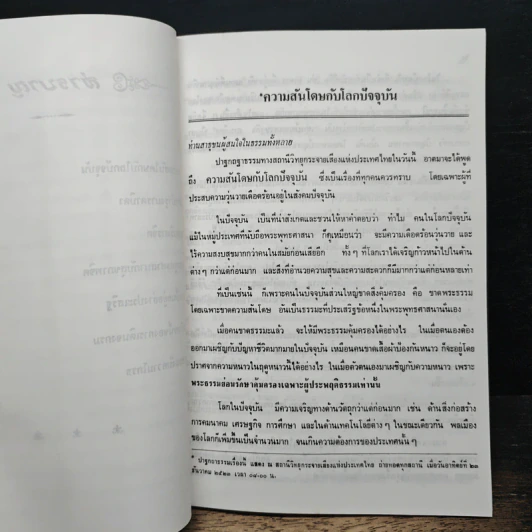 สารบาญ
*ความสันโดษกับโลกปัจจุบัน
ท่านสาธุชนผู้สนใจในธรรมทั้งหลาย
ปาฐกถาธรรมทางสถานีวิทยุกระจายเสียงแห่งประเทศไทยในวันนี้ อาตมาจะได้พูด
ถึง ความสันโดษกับโลกปัจจุบัน ซึ่งเป็นเรื่องที่ทุกคนควรทราบ โดยเฉพาะผู้ที่
ประสบความวุ่นวายเดือดร้อนอยู่ในสังคมปัจจุบัน
ในปัจจุบัน เป็นที่น่าสังเกตและชวนให้หาคำตอบว่า ทำไม คนในโลกปัจจุบัน
แม้ในหมู่ประเทศที่นับถือพระพุทธศาสนา ก็ดูเหมือนว่า จะมีความเดือดร้อนวุ่นวาย และ
ไร้ความสงบสุขมากกว่าคนในสมัยก่อนเสียอีก ทั้ง ๆ ที่โลกเราได้เจริญก้าวหน้าไปในด้าน
ต่าง ๆ กว่าแต่ก่อนมาก และสิ่งที่อำนวยความสุขและความสะดวกก็มีมากกว่าแต่ก่อนหลายเท่า
ที่เป็นเช่นนี้ ก็เพราะคนในปัจจุบันส่วนใหญ่ขาดสิ่งคุ้มครอง คือ ขาดพระธรรม
โดยเฉพาะขาดความสันโดษ อันเป็นธรรมะที่ประเสริฐข้อหนึ่งในพระพุทธศาสนานั่นเอง
เมื่อคนขาดธรรมะแล้ว จะให้มีพระธรรมคุ้มครองได้อย่างไร ในเมื่อตนเองต้อง
ออกมาเผชิญกับปัญหาชีวิตมากมายในปัจจุบัน เหมือนคนขาดเสื้อผ้าป้องกันหนาว ก็จะอยู่โดย
ปราศจากความหนาวในฤดูหนาวได้อย่างไร ในเมื่อตัวตนเองมาเผชิญกับความหนาว เพราะ
พระธรรมย่อมรักษาคุ้มครองเฉพาะผู้ประพฤติธรรมเท่านั้น
โลกในปัจจุบัน มีความเจริญทางด้านวัตถุกว่าแต่ก่อนมาก เช่น ด้านสิ่งก่อสร้าง
การคมนาคม เศรษฐกิจ การศึกษา และในด้านเทคโนโลยีต่าง ๆ ในขณะเดียวกัน พลเมือง
ของโลกก็เพิ่มขึ้นเป็นจำนวนมาก จนเกินความต้องการของประเทศนั้น ๆ
* ปาฐกถาธรรมเรื่องนี้ แสดง ณ สถานีวิทยุกระจายเสียงแห่งประเทศไทย ถ่ายทอดทุกสถานี เมื่อวันอาทิตย์ที่ ๒๑
ธันวาคม ๒๕๒๑ เวลา ๐๘.๐๐ น.